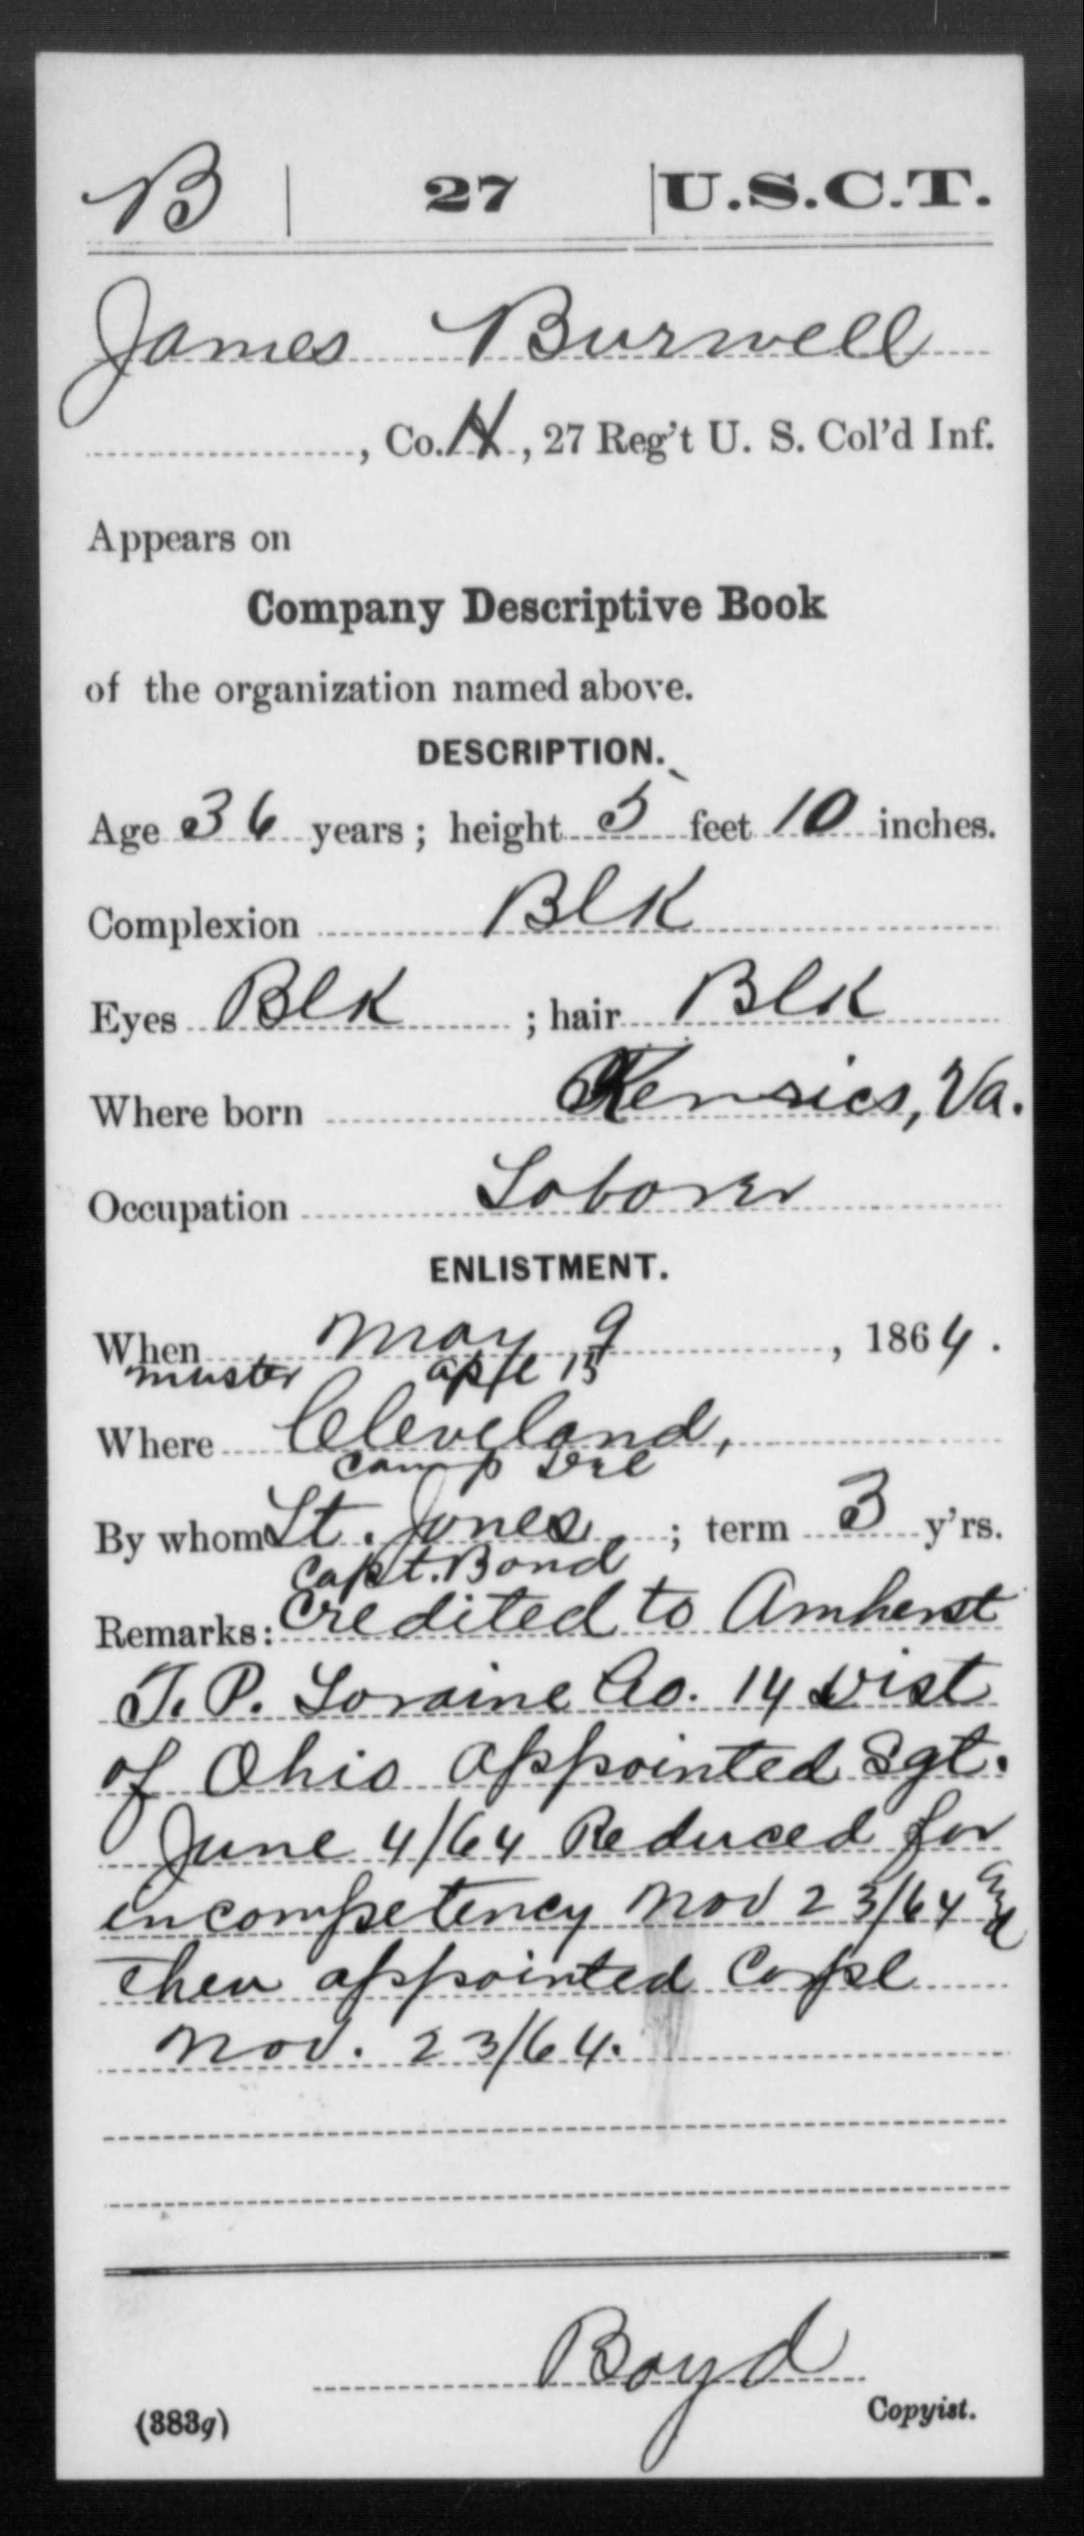 B | 27 | U.S.C.T.
James Burwell
, Co. H, 27 Reg't U. S. Col'd Inf.
Appears on
Company Descriptive Book
of the organization named above.
DESCRIPTION.
Age 36 years; height 5 feet 10 inches.
Complexion Blk
Eyes Blk ; hair Blk
Where born Va.
Occupation Laborer
ENLISTMENT.
When May 9, 1864.
muster 15
Where Cleveland,
Camp
By whom Lt. Jones ; term 3 y'rs.
Capt. Bond
Remarks: Credited to Amherst
T. P. Loraine Co. 14 Dist
of Ohio appointed Sgt.
June 4/64 Reduced for
incompetency Nov 23/64 and
then appointed Corpl
Nov. 23/64.
Boyd
(383g) Copyist.